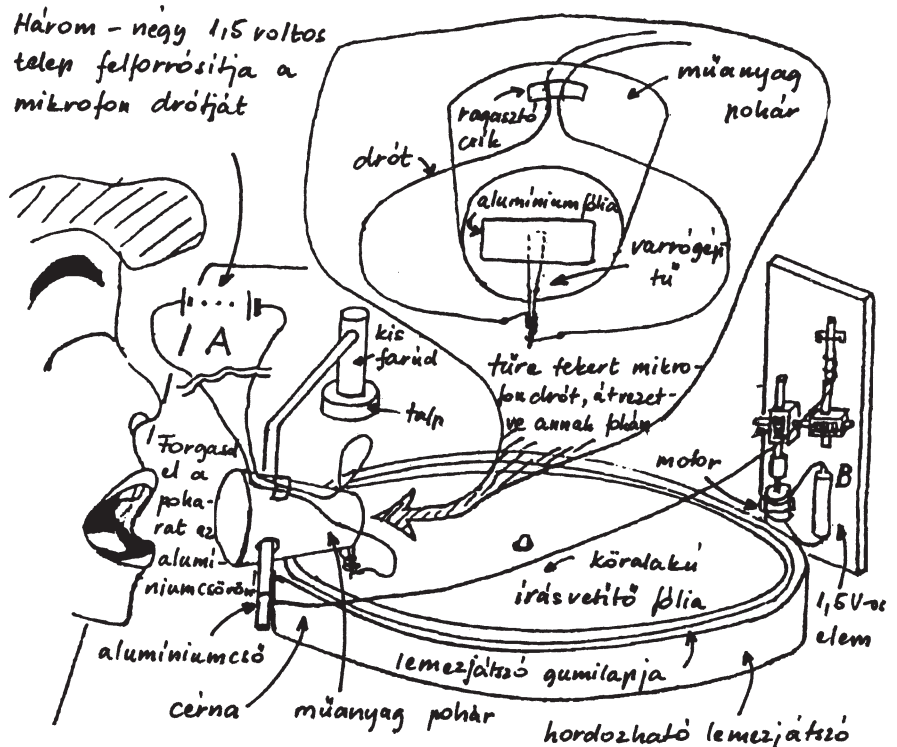 Három – négy 1,5 voltos
telep felforrósitja a
mikrofon drótját
műanyag
pohár
ragasztó
csík
drót
alumínium fólia
varrógép
tű
A
kis
farúd
talp
tűre tekert mikro-
fon drót, átvezet-
ve annak fokán
motor
B
Forgasd
el a
poha-
rat az
alumí-
niumcsörön
köralakú
írásvetítő fólia
1,5V-os
elem
alumíniumcső
lemezjátszó gumilapja
cérna
műanyag pohár
hordozható lemezjátszó